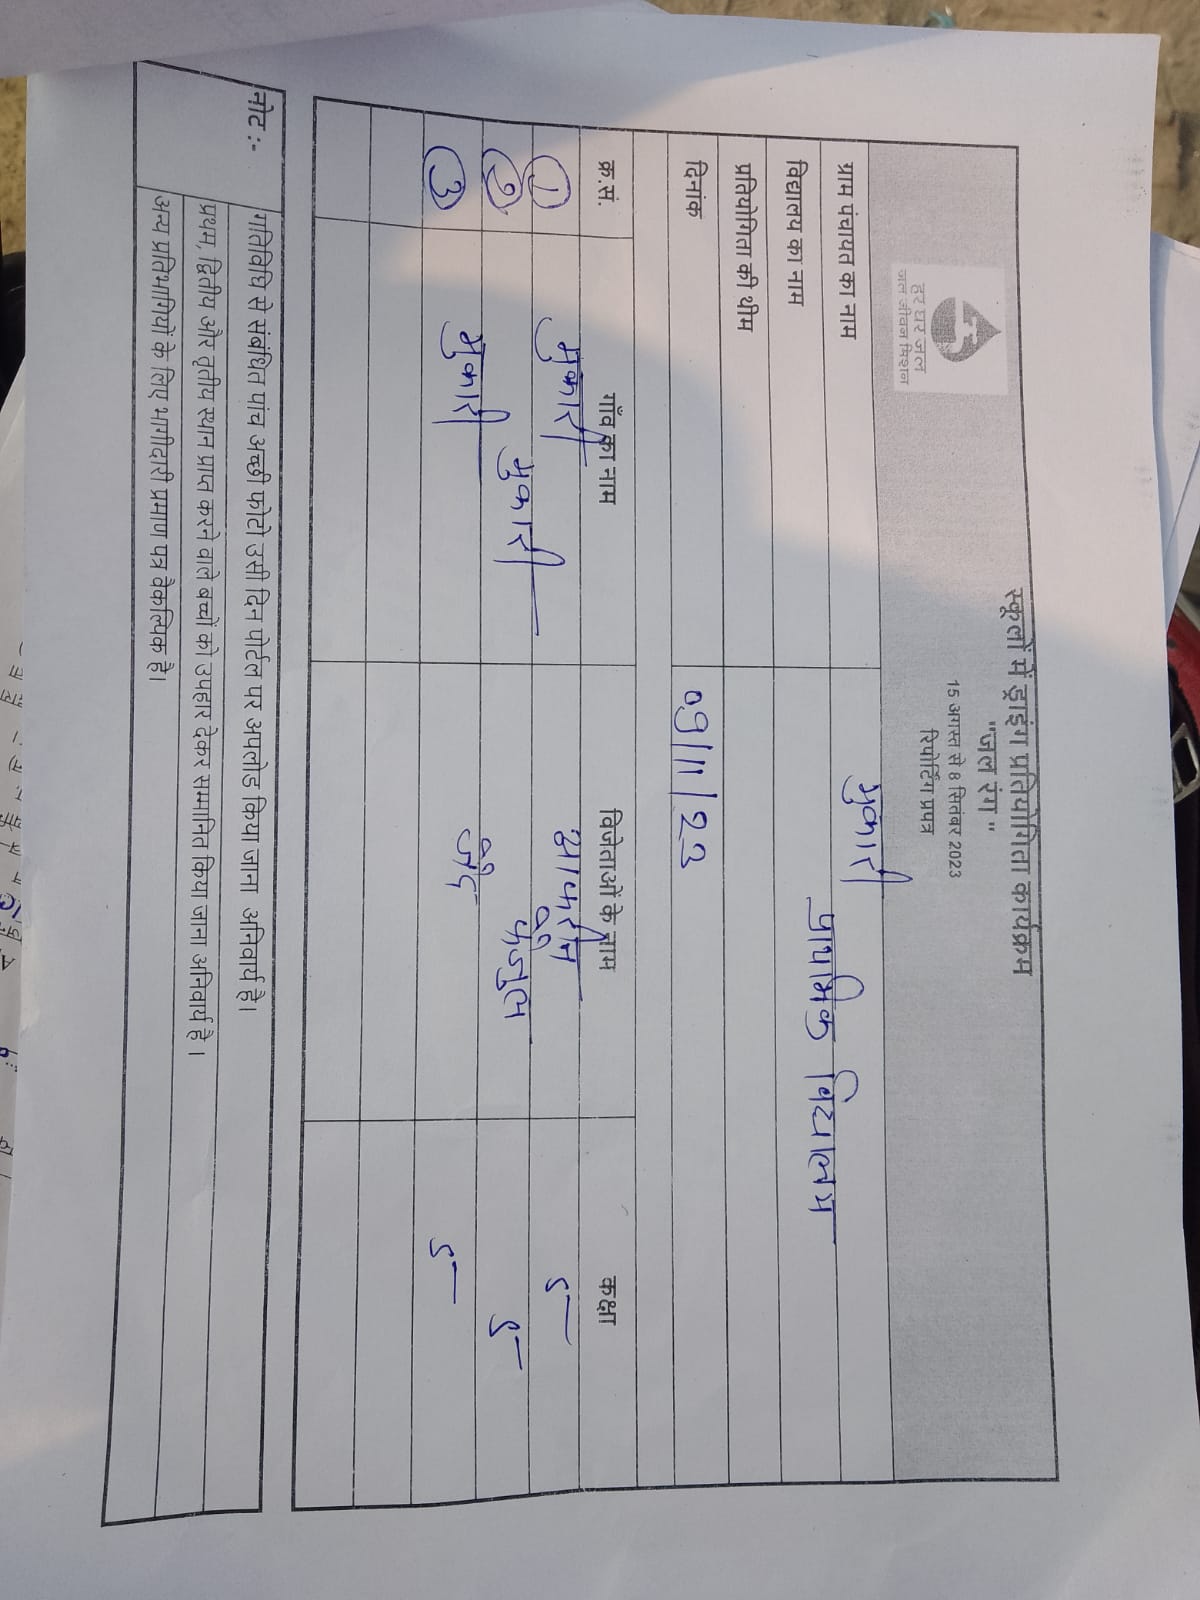 स्कूलों में ड्राइंग प्रतियोगिता कार्यक्रम
"जल रंग"
15 अगस्त से 8 सितंबर 2023
रिपोर्टिंग प्रपत्र
हर घर जल
जल जीवन मिशन
ग्राम पंचायत का नाम मुकारी
विद्यालय का नाम प्राथमिक विद्यालय
प्रतियोगिता की थीम
दिनांक 09/11/23
क्र.सं. गाँव का नाम विजेताओं के नाम कक्षा
1 मुकारी 5
2 मुकारी 5
3 मुकारी 5
नोट :- गतिविधि से संबंधित पांच अच्छी फोटो उसी दिन पोर्टल पर अपलोड किया जाना अनिवार्य है।
प्रथम, द्वितीय और तृतीय स्थान प्राप्त करने वाले बच्चों को उपहार देकर सम्मानित किया जाना अनिवार्य है।
अन्य प्रतिभागियों के लिए भागीदारी प्रमाण पत्र वैकल्पिक है।